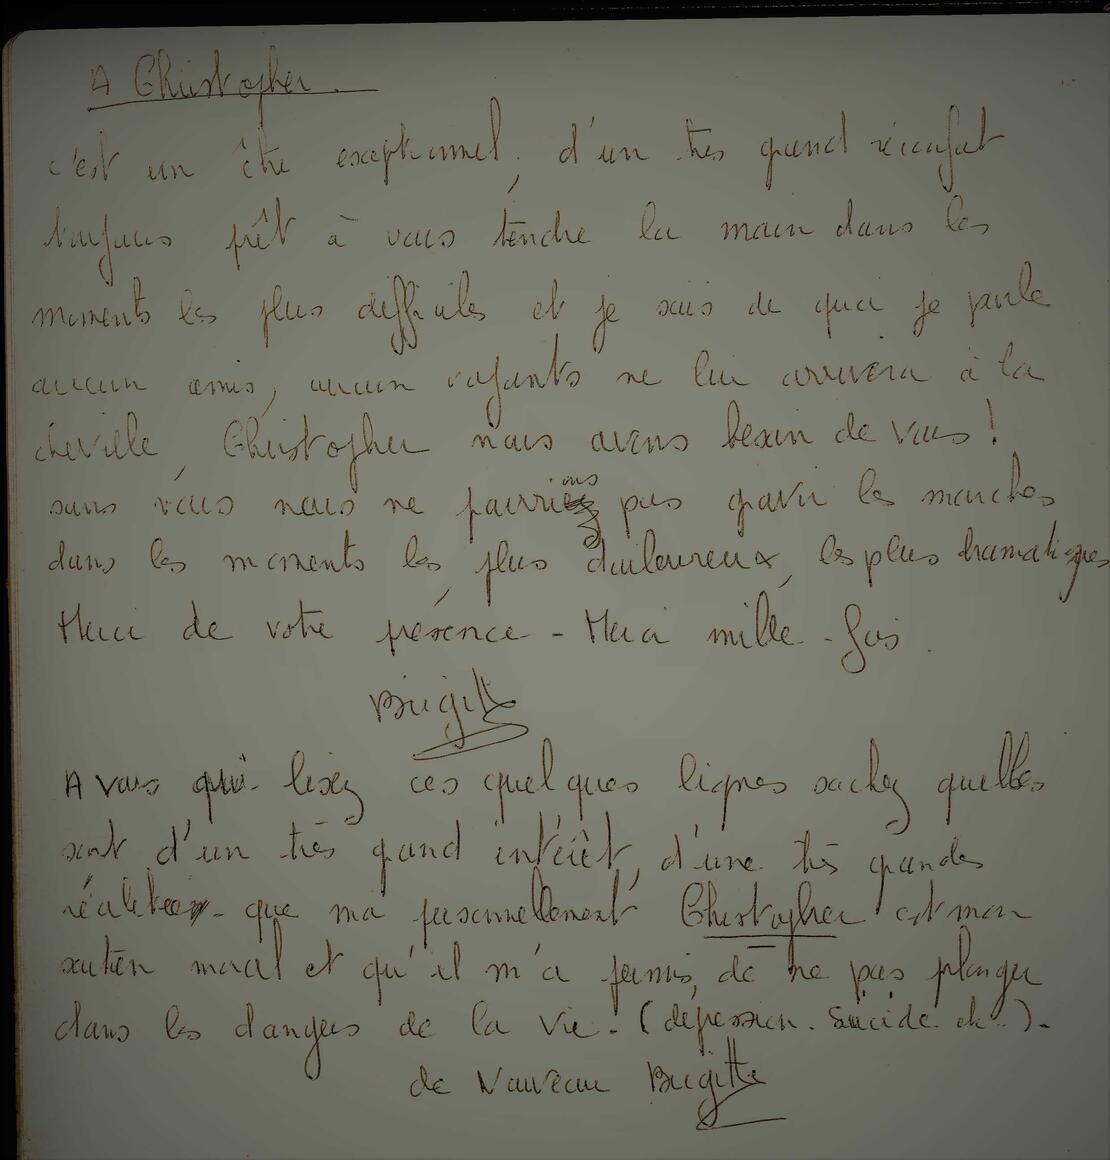 A Christopher.
c'est un être exceptionnel, d'un très grand réconfort
toujours prêt à vous tendre la main dans les
moments les plus difficiles et je sais de quoi je parle
aucun amis, aucun voyants ne lui arrivera à la
cheville, Christopher nous avons besoin de vous !
sans vous nous ne pourrions pas gravir les marches
dans les moments les plus douloureux, les plus dramatiques
Merci de votre présence - Merci mille - fois.
Brigitte
A vous qui lisez ces quelques lignes sachez quelles
sont d'un très grand intérêt, d'une très grandes
que ma personnellement Christopher est mon
soutien moral et qu'il m'a permis, de ne pas plonger
dans les dangers de la vie. (dépression. Suicide. etc..).
de Nouveau Brigitte